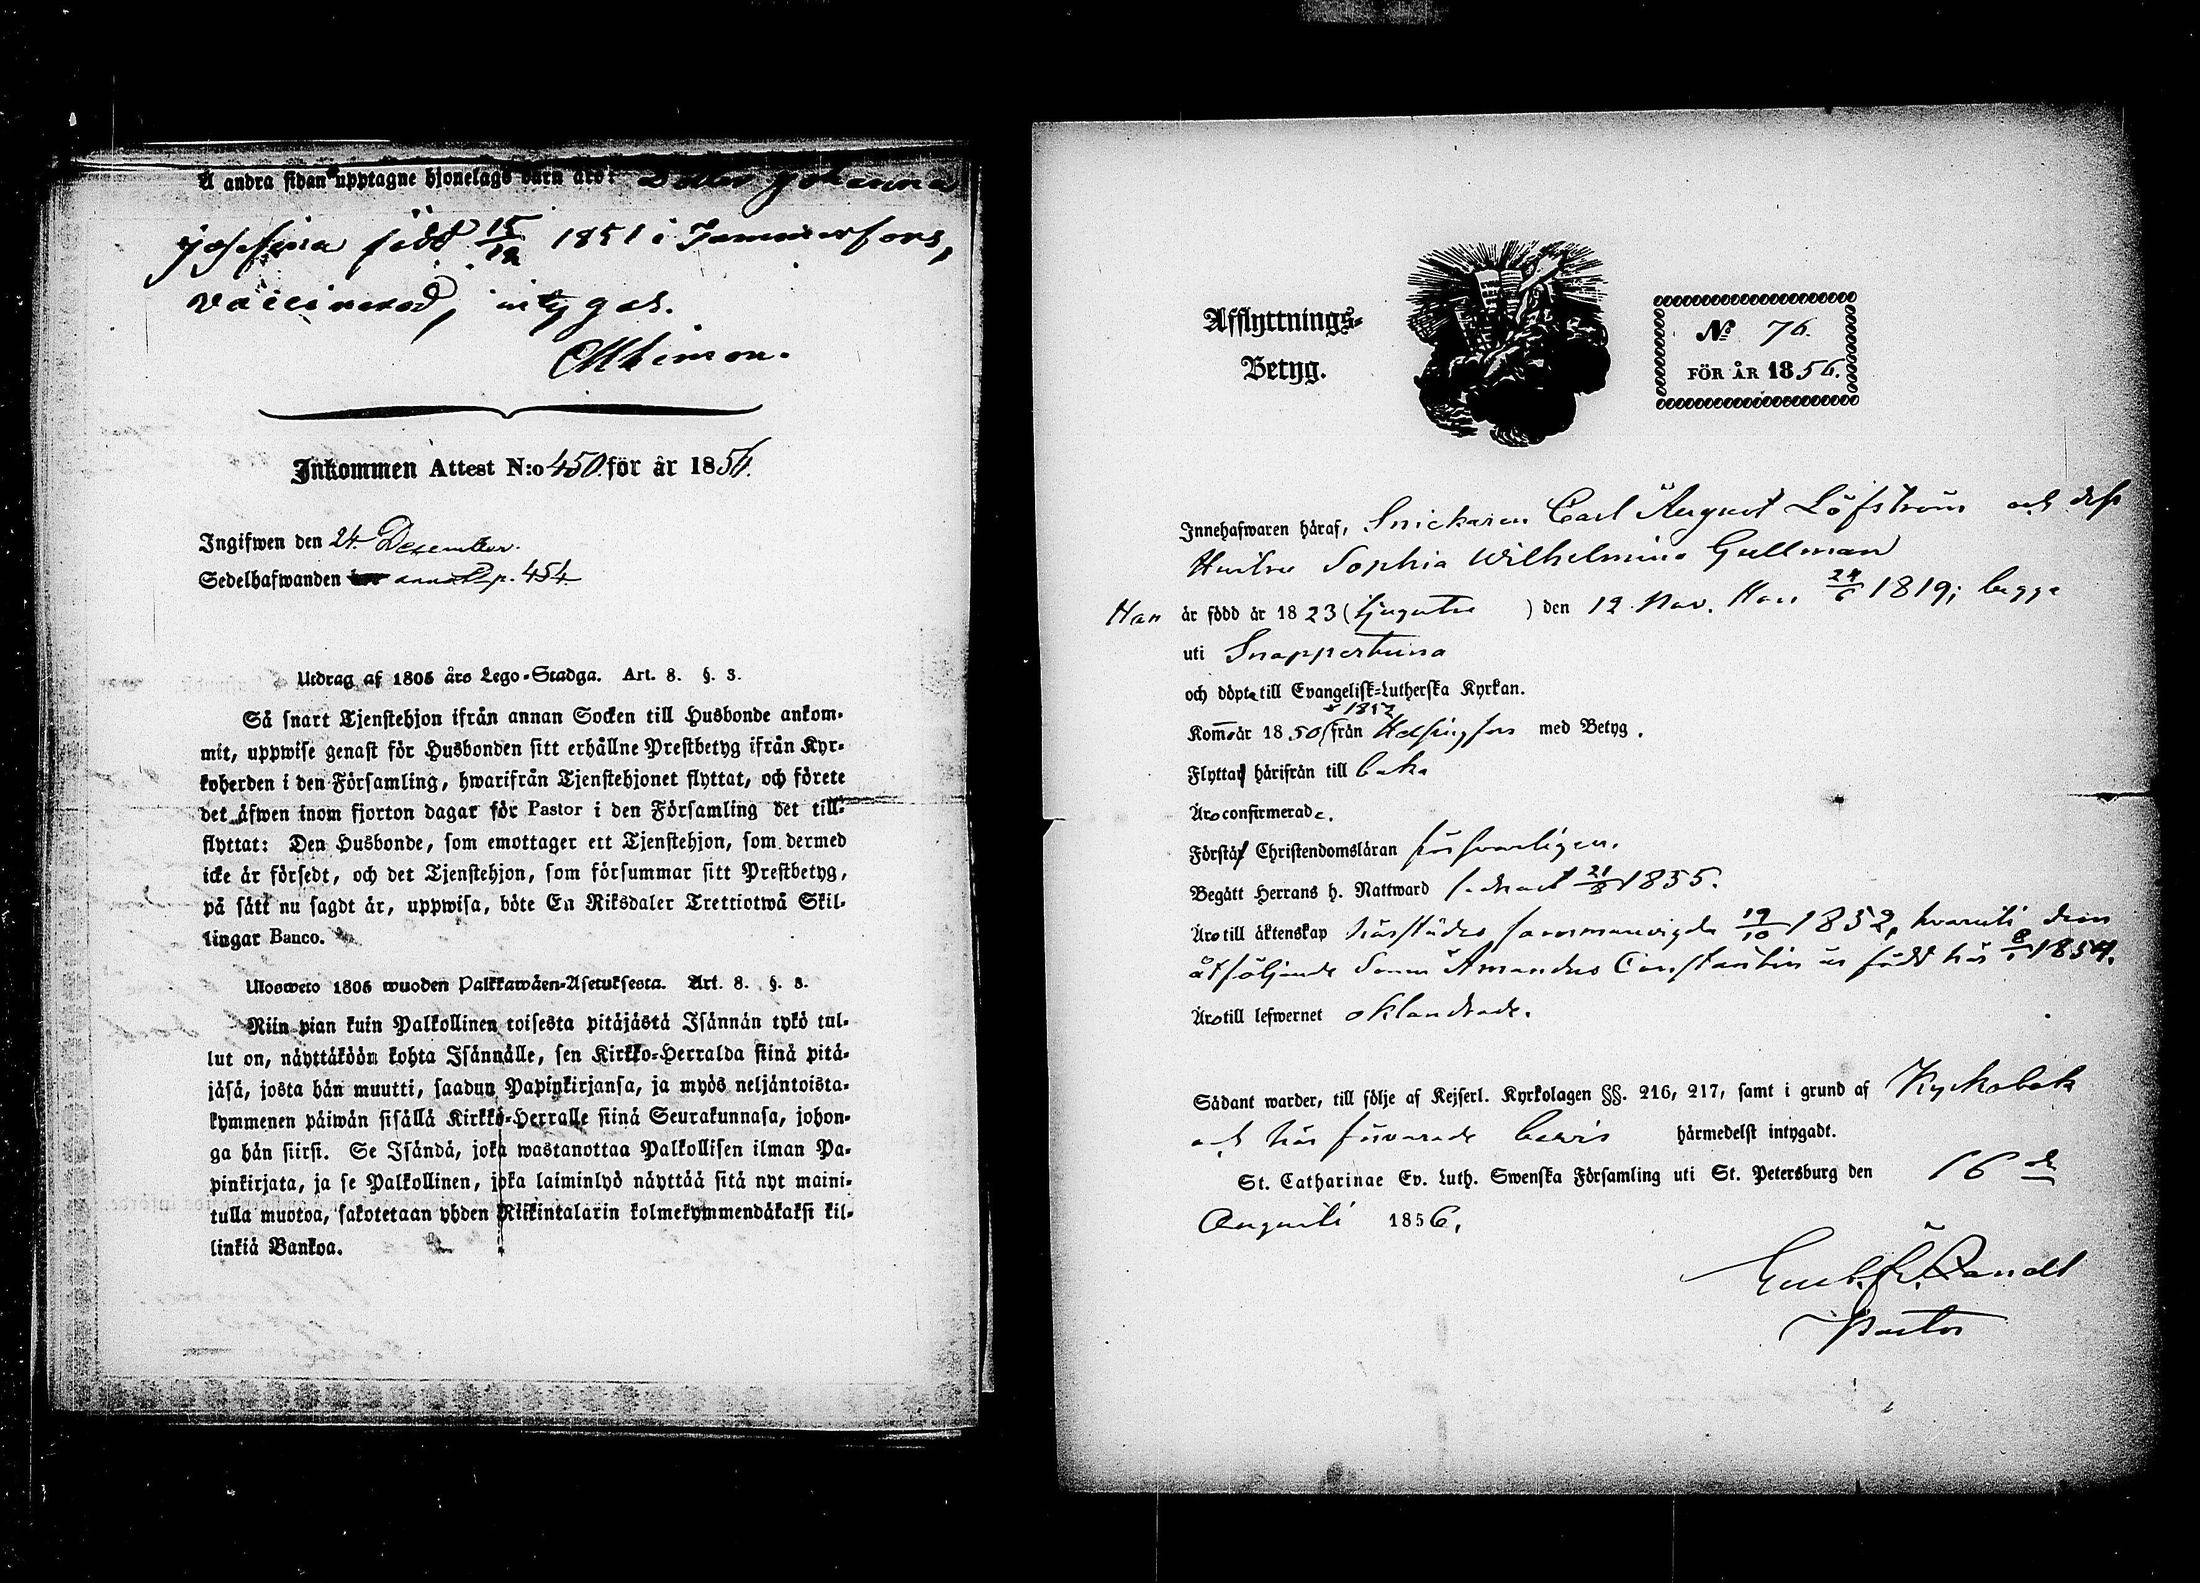 Å andra sidan upptagne hjonelags barn äro: Dotter Johanna
Josefina född 15/12 1851 i Tammerfors,
vaccinerad, intygas.
Inkommen Attest N:o 450 för år 1856.
Ingifwen den 24 December.
Sedelhafwanden p. 454
Utdrag af 1805 års Lego-Stadga. Art. 8. §. 3.
Så snart Tjenstehjon ifrån annan Socken till Husbonde ankom-
mit, uppwise genast för Husbonden sitt erhållne Prestbetyg ifrån Kyr-
koherden i den Församling, hwarifrån Tjenstehjonet flyttat, och förete
det äfwen inom fjorton dagar för Pastor i den Församling det till-
flyttat: Den Husbonde, som emottager ett Tjenstehjon, som dermed
icke är försedt, och det Tjenstehjon, som försummar sitt Prestbetyg,
på sätt nu sagdt är, uppwisa, böte En Riksdaler Trettiotwå Skil-
lingar Banco.
Uloswеto 1805 wuoden Palkkawäen-Asetuksesta. Art. 8. §. 3.
Niin pian kuin Palkollinen toisesta pitäjästä Isännän tykö tul-
lut on, näyttäköön kohta Isännälle, sen Kirkko-Herralda siinä pitä-
jäsä, josta hän muutti, saadun Papinkirjansa, ja myös neljäntoista-
kymmenen päiwän sisällä Kirkko-Herralle siinä Seurakunnasa, johon-
ga hän siirsi. Se Isändä, joka wastanottaa Palkollisen ilman Pa-
pinkirjata, ja se Palkollinen, joka laiminlyö näyttää sitä nyt maini-
tulla muotoa, sakotetaan yhden Riikintalarin kolmekymmendäkaksi kil-
linkiä Bankoa.
Afflyttnings-
Betyg.
No 76.
FÖR ÅR 1856.
Innehafwaren häraf, Snickaren Carl August Löfström och dess
Hustru Sophia Wilhelmina Gullman
Han är född år 1823 (tjugutre) den 12 Nov. Hon 24/6 1819; begge
uti Snappertuna
och döpte till Evangelisk-Lutherska Kyrkan.
Kommo år 1850 & 1852 från Helsingfors med Betyg.
Flytta härifrån till baka
Äro confirmerade.
Förstå Christendomsläran försvarligen.
Begått Herrans h. Nattward sednast 21/8 1855.
Äro till äktenskap härstädes sammanvigde 19/10 1852, hvaruti dem
åtföljande Sonen Amandus Constantin är född här 1854.
Äro till lefwernet oklandrade.
Sådant warder, till följe af Kejserl. Kyrkolagen §§. 216, 217, samt i grund af Kyrkobok
och här förvarade bewis härmedelst intygadt.
St. Catharinae Ev. Luth. Swenska Församling uti St. Petersburg den 16 de
Augusti 1856.
Pastor